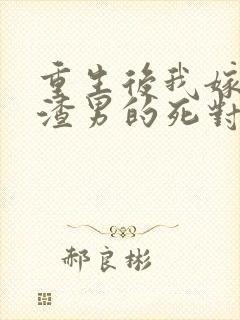 重生後我嫁
渣男的死對
郝良彬